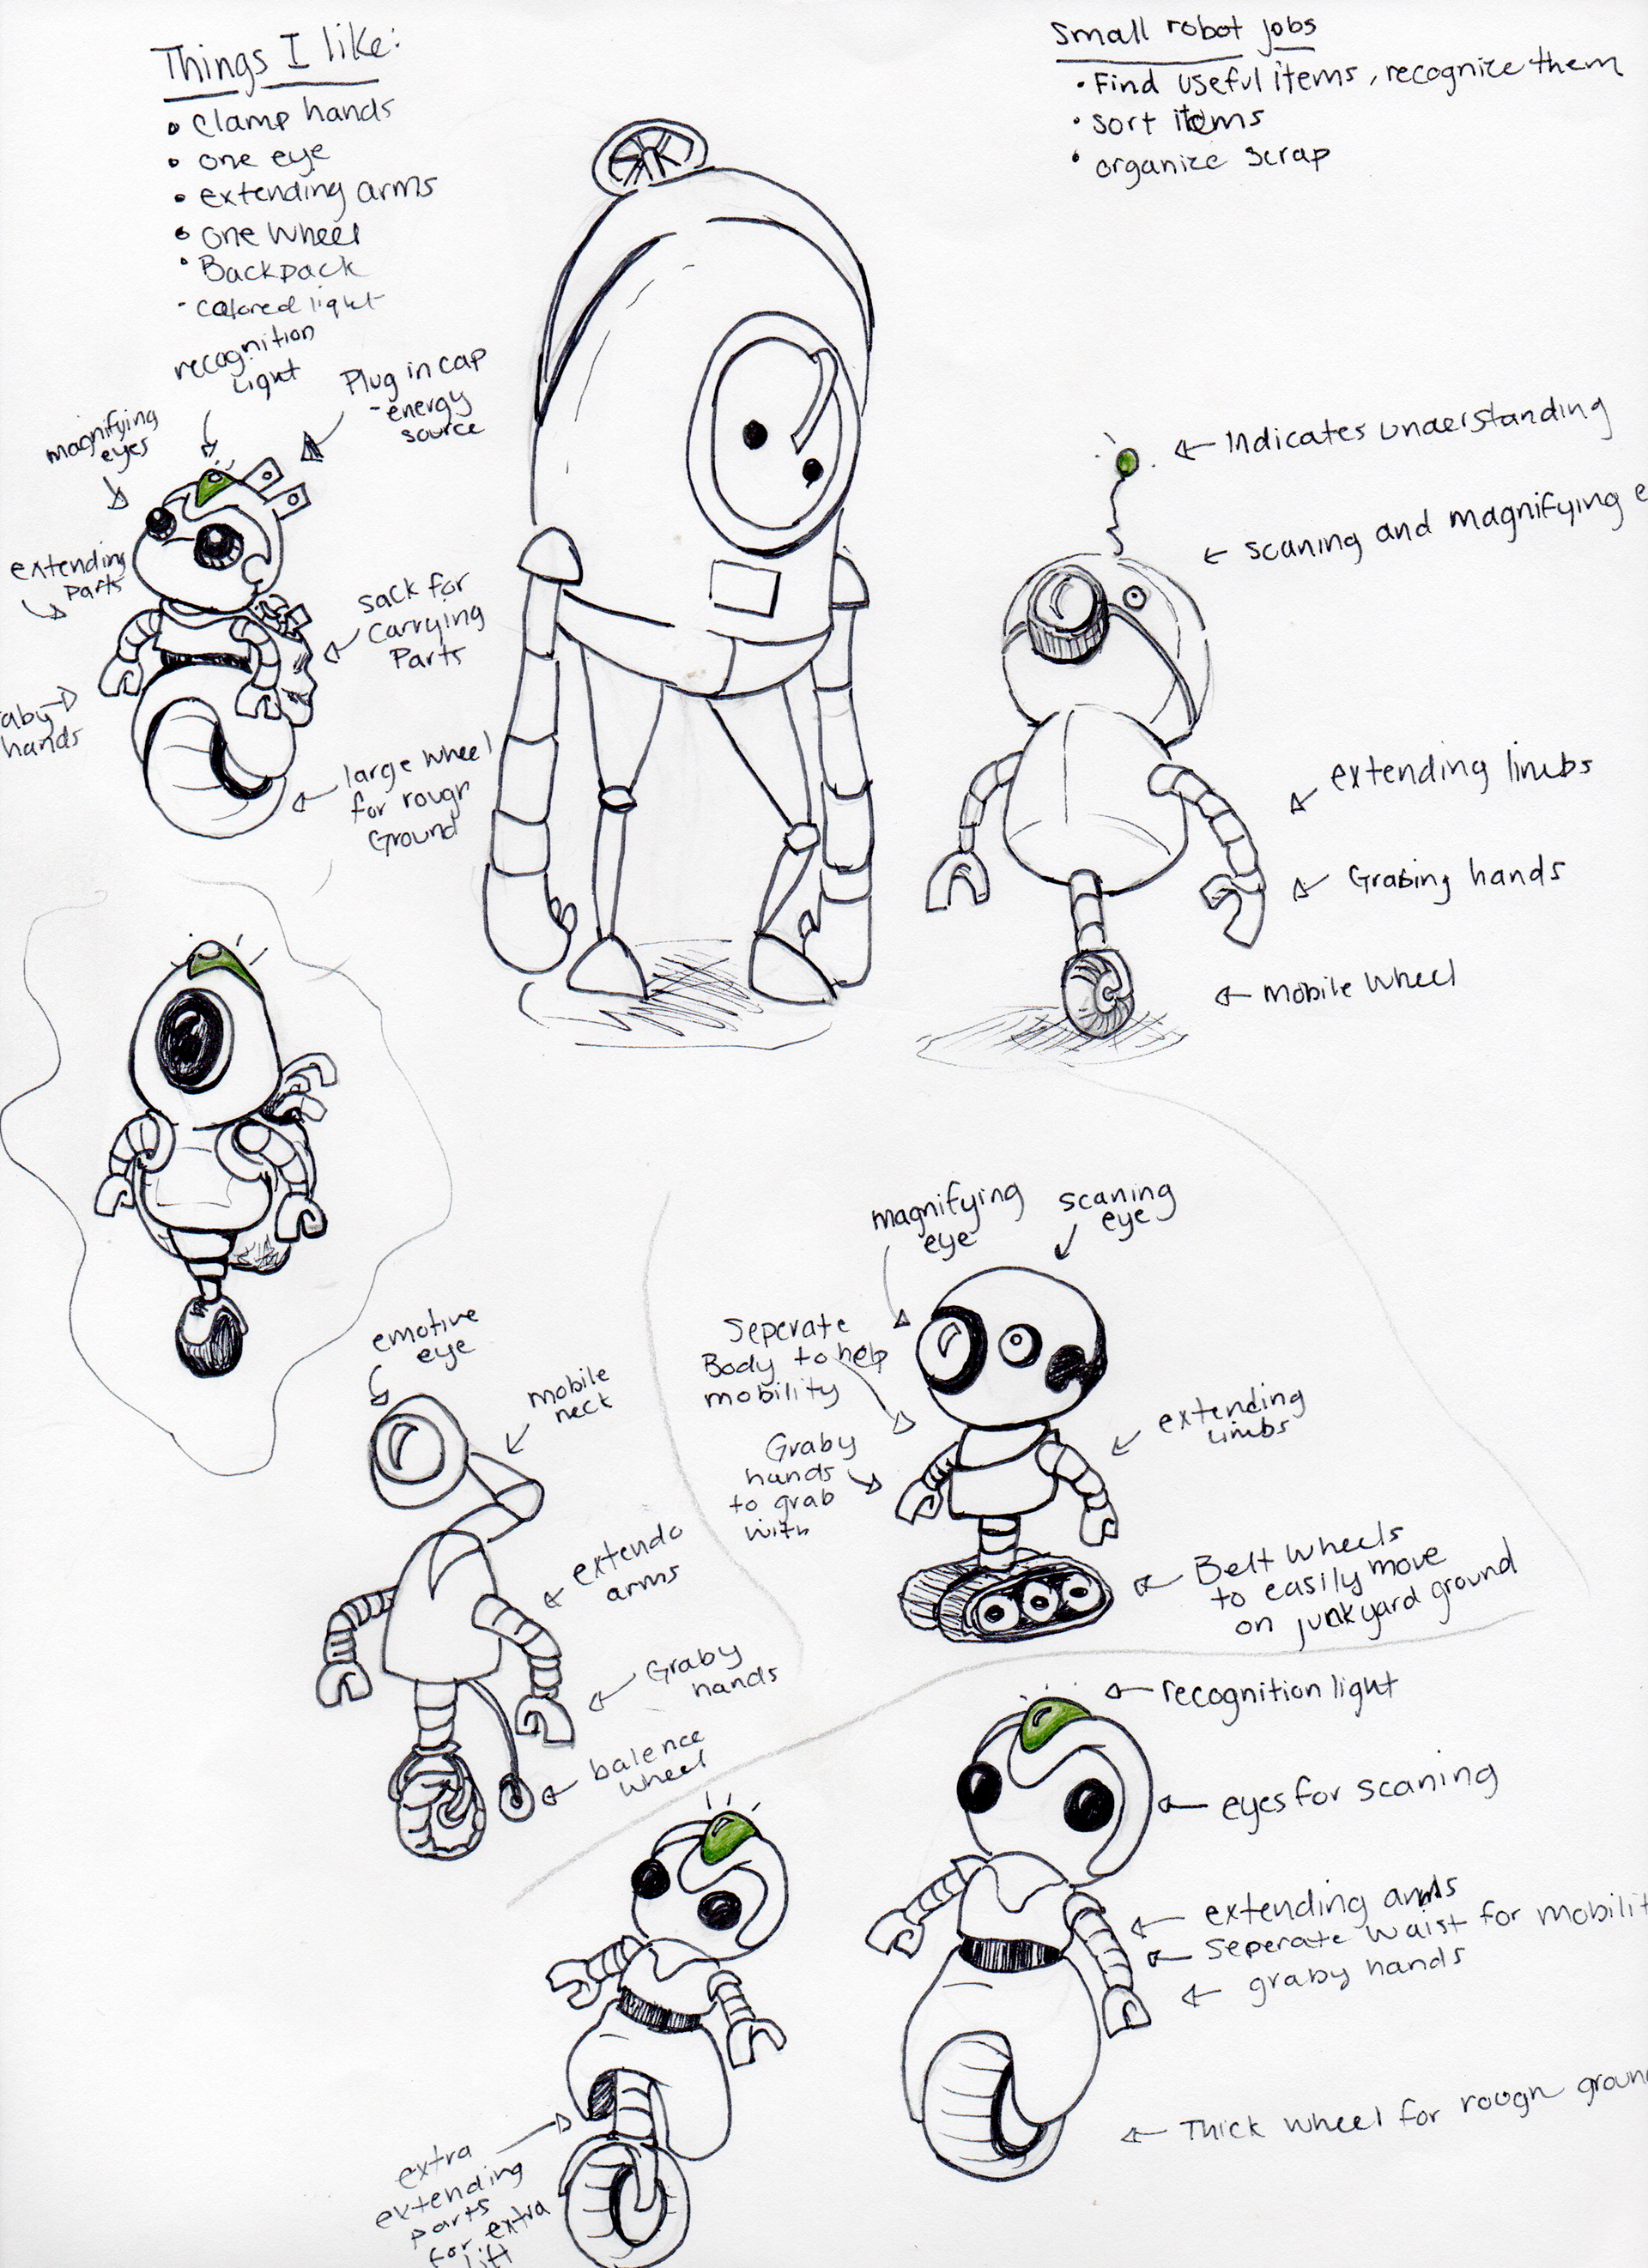 Things I like:
• clamp hands
• one eye
• extending arms
• one wheel
• Backpack
- colored light
Small robot jobs
• Find useful items, recognize them
• sort items
• organize scrap
recognition
light
Plug in cap
- energy
source
magnifying
eyes
extending
Parts
sack for
carrying
Parts
hands
large wheel
for rough
Ground
Indicates understanding
scaning and magnifying
extending limbs
Grabing hands
mobile wheel
magnifying
eye
scaning
eye
Seperate
Body to help
mobility
Graby
hands
to grab
with
extending
limbs
Belt wheels
to easily move
on junkyard ground
emotive
eye
mobile
neck
extendo
arms
Graby
hands
balence
wheel
recognition light
eyes for scaning
extending arms
Seperate waist for
graby hands
Thick wheel for rough
extra
extending
parts
for extra
lift